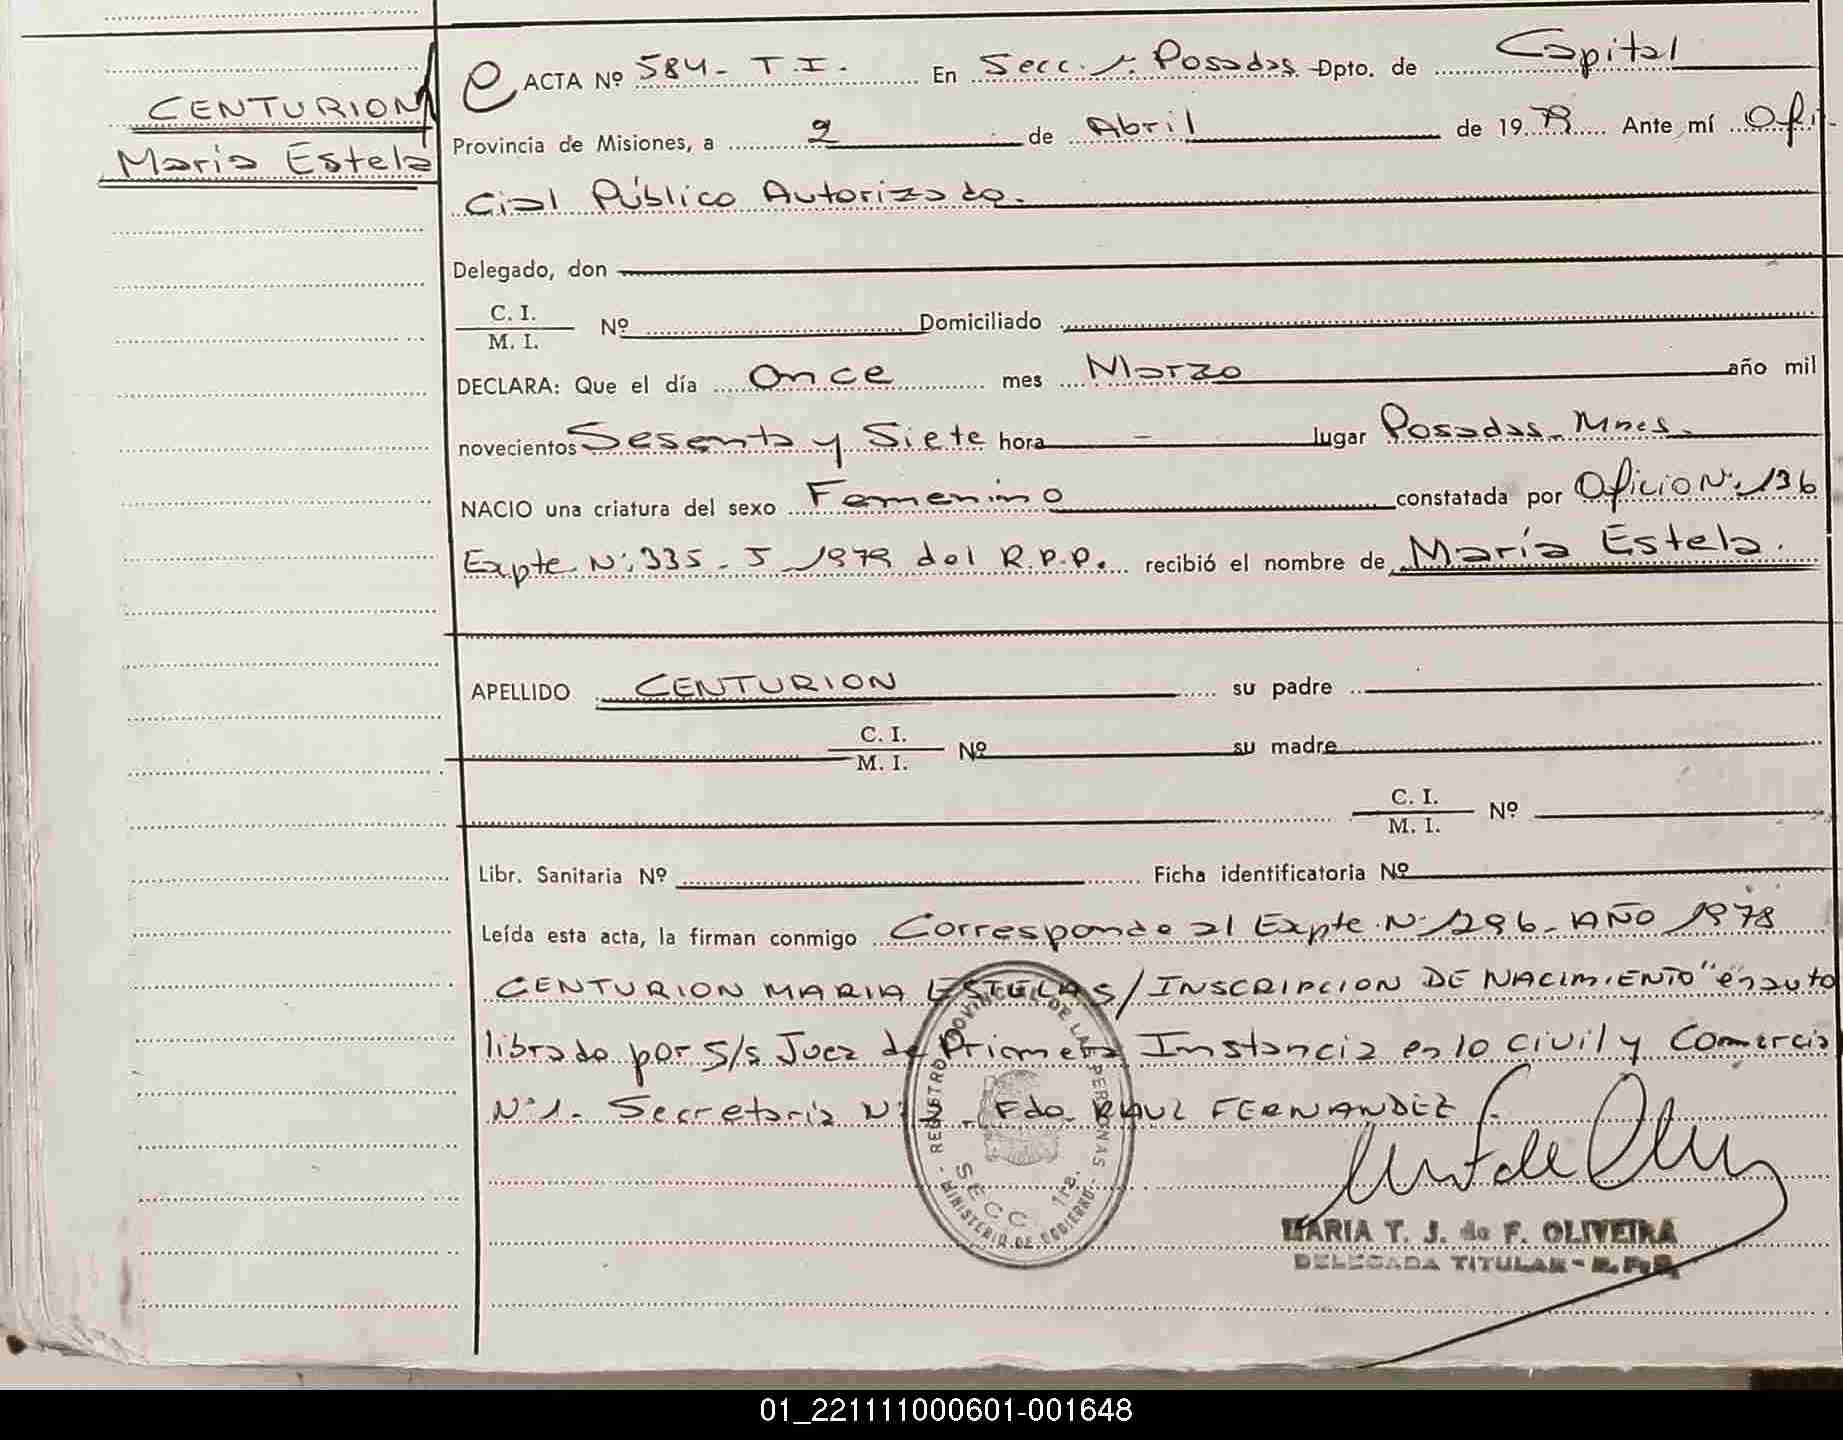 CENTURION
Maria Estela
e ACTA Nº 584 - T.I. En Secc. 1: Posadas - Dpto. de Capital
Provincia de Misiones, a 2 de Abril de 1979 Ante mí Ofi-
cial Público Autorizado.
Delegado, don
C. I.
M. I. Nº Domiciliado
DECLARA: Que el día Once mes Marzo año mil
novecientos Sesenta y Siete hora - lugar Posadas - Mnes.
NACIO una criatura del sexo Femenino constatada por Oficio Nº 136
Expte. Nº: 335 - 5 - 1979 del R.P.P. recibió el nombre de María Estela.
APELLIDO CENTURION su padre
C. I.
M. I. Nº su madre
C. I.
M. I. Nº
Libr. Sanitaria Nº Ficha identificatoria Nº
Leída esta acta, la firman conmigo Corresponde al Expte. Nº 1296 - AÑO 1978
CENTURION MARIA ESTELA S/INSCRIPCION DE NACIMIENTO" en auto
librado por S/S Juez de Primera Instancia en lo civil y Comercia
Nº 1 - Secretaria Nº 2 - Fdo. RAUL FERNANDEZ.
REGISTRO PROVINCIAL DE LAS PERSONAS
SECC. 1ra.
MINISTERIO DE GOBIERNO
MARIA T. J. de F. OLIVEIRA
DELEGADA TITULAR - R. P. P.
01_221111000601-001648